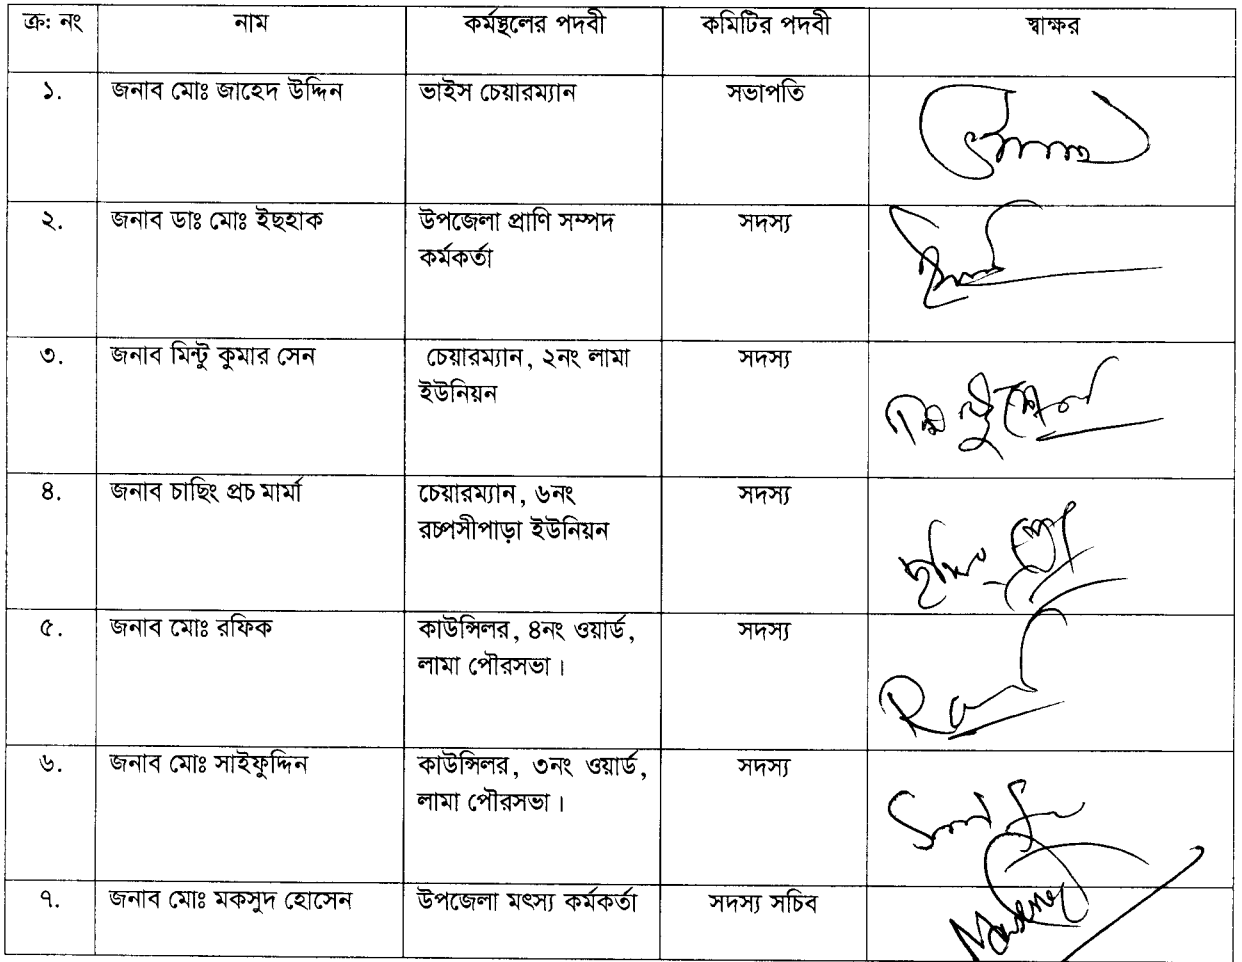 ক্র: নং নাম কর্মস্থলের পদবী কমিটির পদবী স্বাক্ষর
১. জনাব মোঃ জাহেদ উদ্দিন ভাইস চেয়ারম্যান সভাপতি
২. জনাব ডাঃ মোঃ ইছহাক উপজেলা প্রাণি সম্পদ সদস্য
কর্মকর্তা
৩. জনাব মিন্টু কুমার সেন চেয়ারম্যান, ২নং লামা সদস্য
ইউনিয়ন
৪. জনাব চাছিং প্রচ মার্মা চেয়ারম্যান, ৬নং সদস্য
রচপসীপাড়া ইউনিয়ন
৫. জনাব মোঃ রফিক কাউন্সিলর, ৪নং ওয়ার্ড, সদস্য
লামা পৌরসভা।
৬. জনাব মোঃ সাইফুদ্দিন কাউন্সিলর, ৩নং ওয়ার্ড, সদস্য
লামা পৌরসভা।
৭. জনাব মোঃ মকসুদ হোসেন উপজেলা মৎস্য কর্মকর্তা সদস্য সচিব